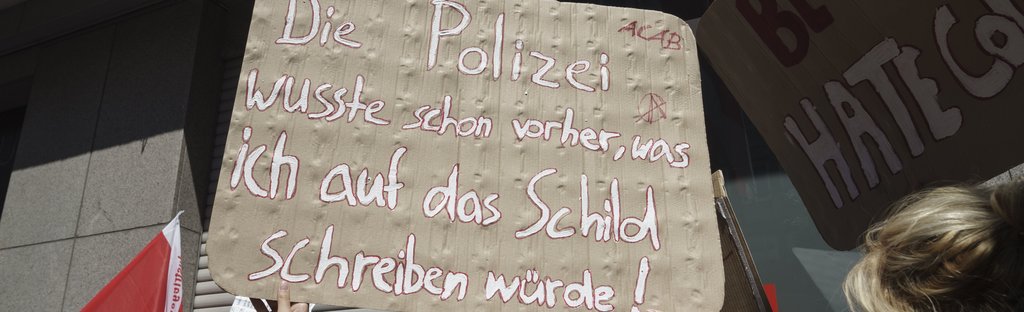 Die Polizei
ACAB
wusste schon vorher, was
ich auf das Schild
schreiben würde!
BE
HATE Co